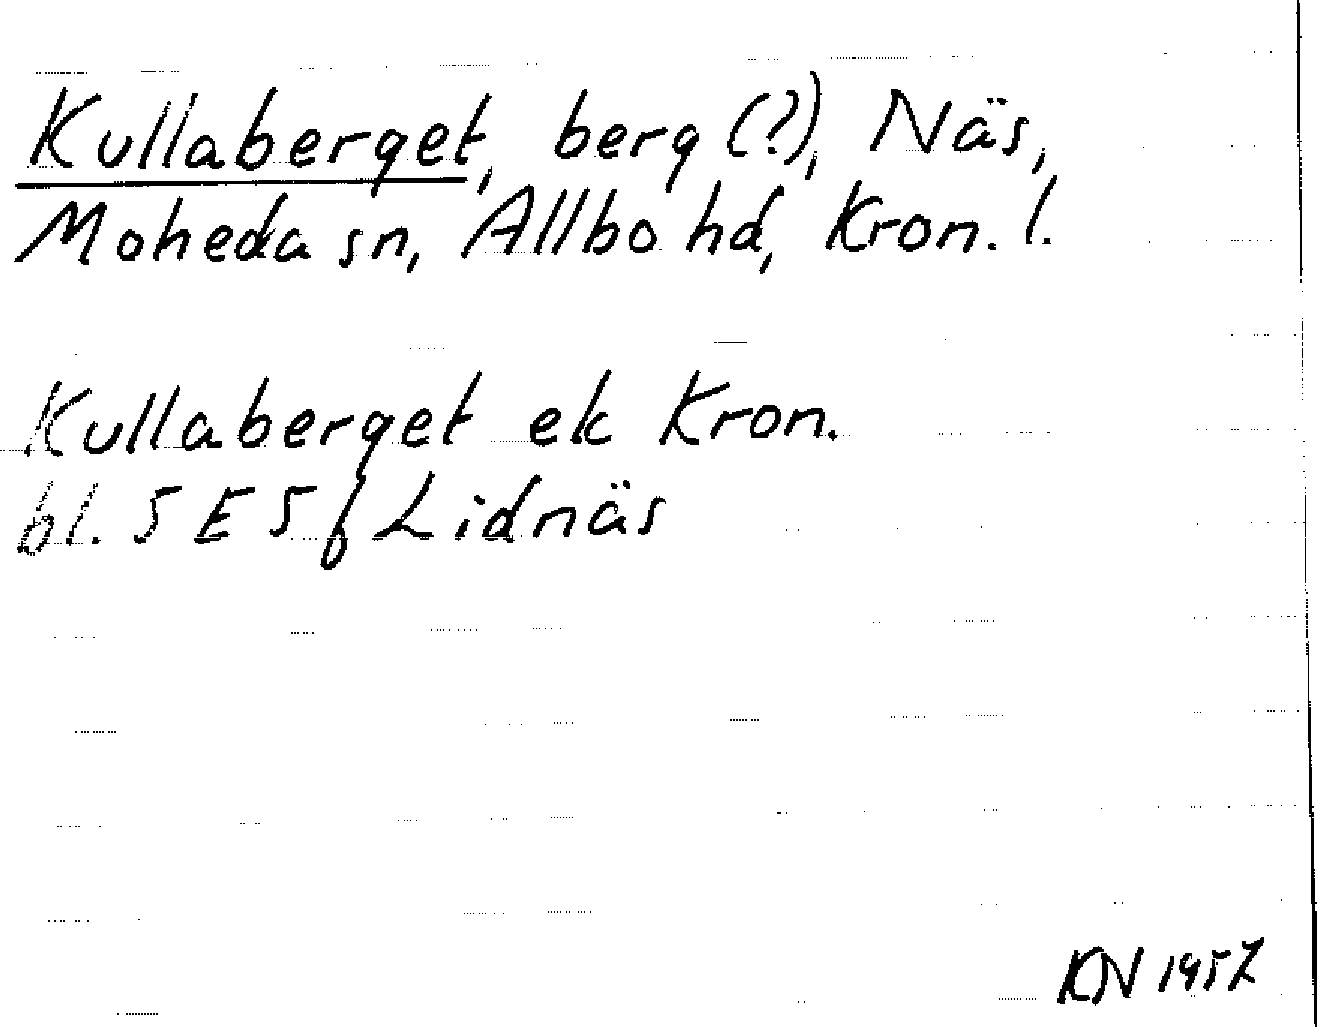 Kullaberget, berg (?), Näs,
Moheda sn, Allbo hd, Kron. l.
Kullaberget ek Kron.
bl. 5 E 5 f Lidnäs
KN 1957